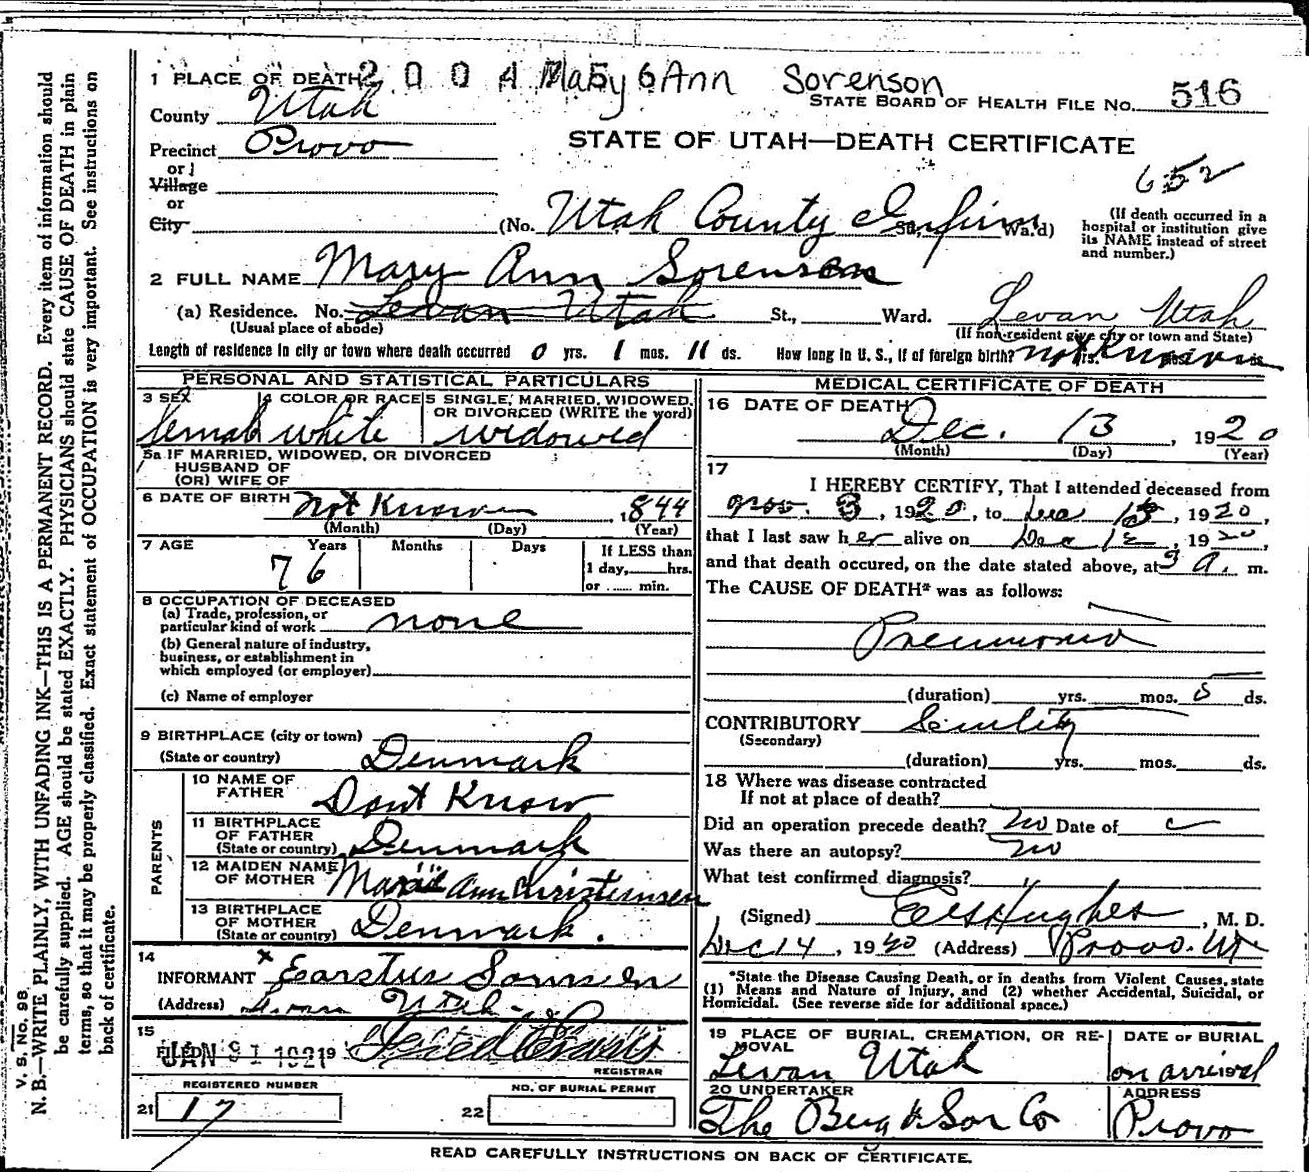 2 0 0 4 Mary Ann Sorenson
1 PLACE OF DEATH
STATE BOARD OF HEALTH FILE No. 516
County Utah
Precinct Provo
STATE OF UTAH—DEATH CERTIFICATE
652
or
Village
or
City (No. Utah County Infirm St., Ward)
(If death occurred in a
hospital or institution give
its NAME instead of street
and number.)
2 FULL NAME Mary Ann Sorensen
(a) Residence. No. Levan Utah St., Ward. Levan Utah
(Usual place of abode) (If non-resident give city or town and State)
Length of residence in city or town where death occurred 0 yrs. 1 mos. 11 ds. How long in U. S., if of foreign birth? not known
PERSONAL AND STATISTICAL PARTICULARS
3 SEX 4 COLOR OR RACE 5 SINGLE, MARRIED, WIDOWED,
OR DIVORCED (WRITE the word)
female white widowed
5a IF MARRIED, WIDOWED, OR DIVORCED
HUSBAND OF
(OR) WIFE OF
6 DATE OF BIRTH not Known, 1844
(Month) (Day) (Year)
7 AGE Years Months Days If LESS than
1 day, hrs.
or min.
76
8 OCCUPATION OF DECEASED
(a) Trade, profession, or
particular kind of work none
(b) General nature of industry,
business, or establishment in
which employed (or employer)
(c) Name of employer
9 BIRTHPLACE (city or town)
(State or country) Denmark
PARENTS
10 NAME OF
FATHER Dont Know
11 BIRTHPLACE
OF FATHER
(State or country) Denmark
12 MAIDEN NAME
OF MOTHER Ann Christensen
13 BIRTHPLACE
OF MOTHER
(State or country) Denmark.
14
INFORMANT x Earstus Sorensen
(Address) Levan Utah
15
FILED JAN 1921 19
REGISTRAR
REGISTERED NUMBER NO. OF BURIAL PERMIT
21 17 22
MEDICAL CERTIFICATE OF DEATH
16 DATE OF DEATH
Dec. 13, 1920
(Month) (Day) (Year)
17
I HEREBY CERTIFY, That I attended deceased from
Nov. 3, 1920, to Dec 13, 1920,
that I last saw her alive on Dec 12, 1920,
and that death occured, on the date stated above, at 3 A. m.
The CAUSE OF DEATH* was as follows:
Pneumonia
(duration) yrs. mos. 5 ds.
CONTRIBUTORY Senility
(Secondary)
(duration) yrs. mos. ds.
18 Where was disease contracted
If not at place of death?
Did an operation precede death? no Date of
Was there an autopsy? no
What test confirmed diagnosis?
(Signed) Hughes, M. D.
Dec 14, 1920 (Address) Provo. Ut
*State the Disease Causing Death, or in deaths from Violent Causes, state
(1) Means and Nature of Injury, and (2) whether Accidental, Suicidal, or
Homicidal. (See reverse side for additional space.)
19 PLACE OF BURIAL, CREMATION, OR RE-
MOVAL
Levan Utah
DATE OF BURIAL
on arrival
20 UNDERTAKER
The Berg & Son Co
ADDRESS
Provo
READ CAREFULLY INSTRUCTIONS ON BACK OF CERTIFICATE.
V. S. No. 98
N. B.—WRITE PLAINLY, WITH UNFADING INK—THIS IS A PERMANENT RECORD. Every item of information should
be carefully supplied. AGE should be stated EXACTLY. PHYSICIANS should state CAUSE OF DEATH in plain
terms, so that it may be properly classified. Exact statement of OCCUPATION is very important. See instructions on
back of certificate.